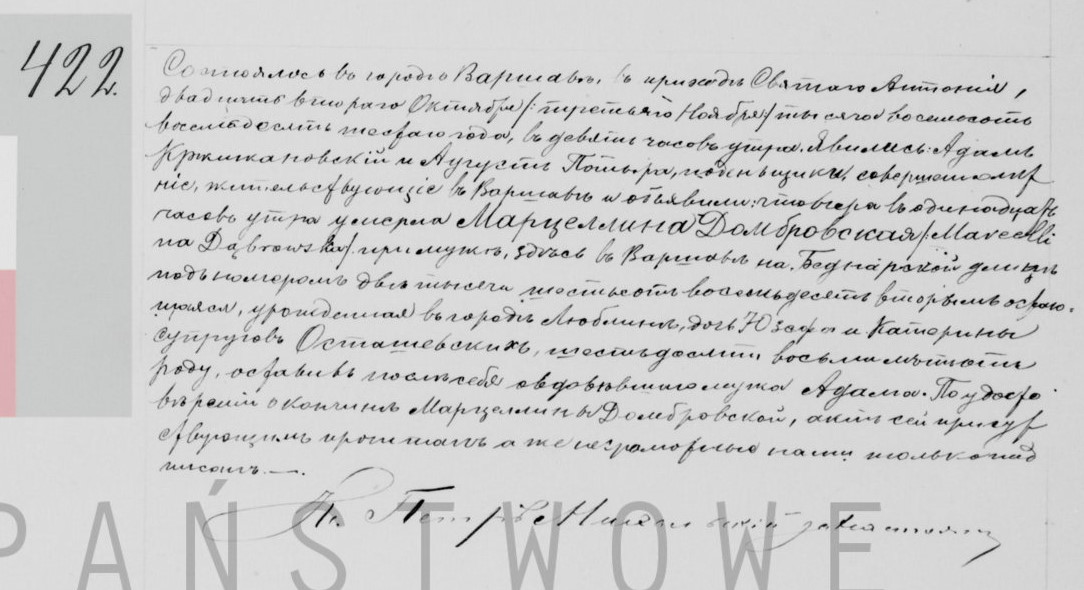 422.
Состоялось въ городѣ Варшавѣ, въ приходѣ Святаго Антонія,
двадцать втораго Октября /: третьяго Ноября :/ тысяча восемьсотъ
восемьдесятъ шестаго года, въ девять часовъ утра. Явились: Адамъ
Кржижановскій и Августъ Потыра, поденьщики, совершеннолѣт
ніе, жительствующіе въ Варшавѣ и объявили: что вчера въ одинадцать
часовъ утра умерла Марцеллина Домбровская /: Marcelli
na Dąbrowska :/ при мужѣ, здѣсь въ Варшавѣ на Беднарской улицѣ
подъ номеромъ двѣ тысячи шестьсотъ восемьдесятъ вторымъ
урожденная въ городѣ Люблинѣ, дочь Юзефа и Катерины
супруговъ Осташевскихъ, шестьдесяти восьми лѣтъ отъ
роду, оставивъ послѣ себя овдовѣвшаго мужа Адама. По удосто
вѣреніи о кончинѣ Марцеллины Домбровской, актъ сей присут
ствующимъ прочитанъ а же неграмотные нами только под
писанъ. —.
Кс. Петръ
PAŃSTWOWE